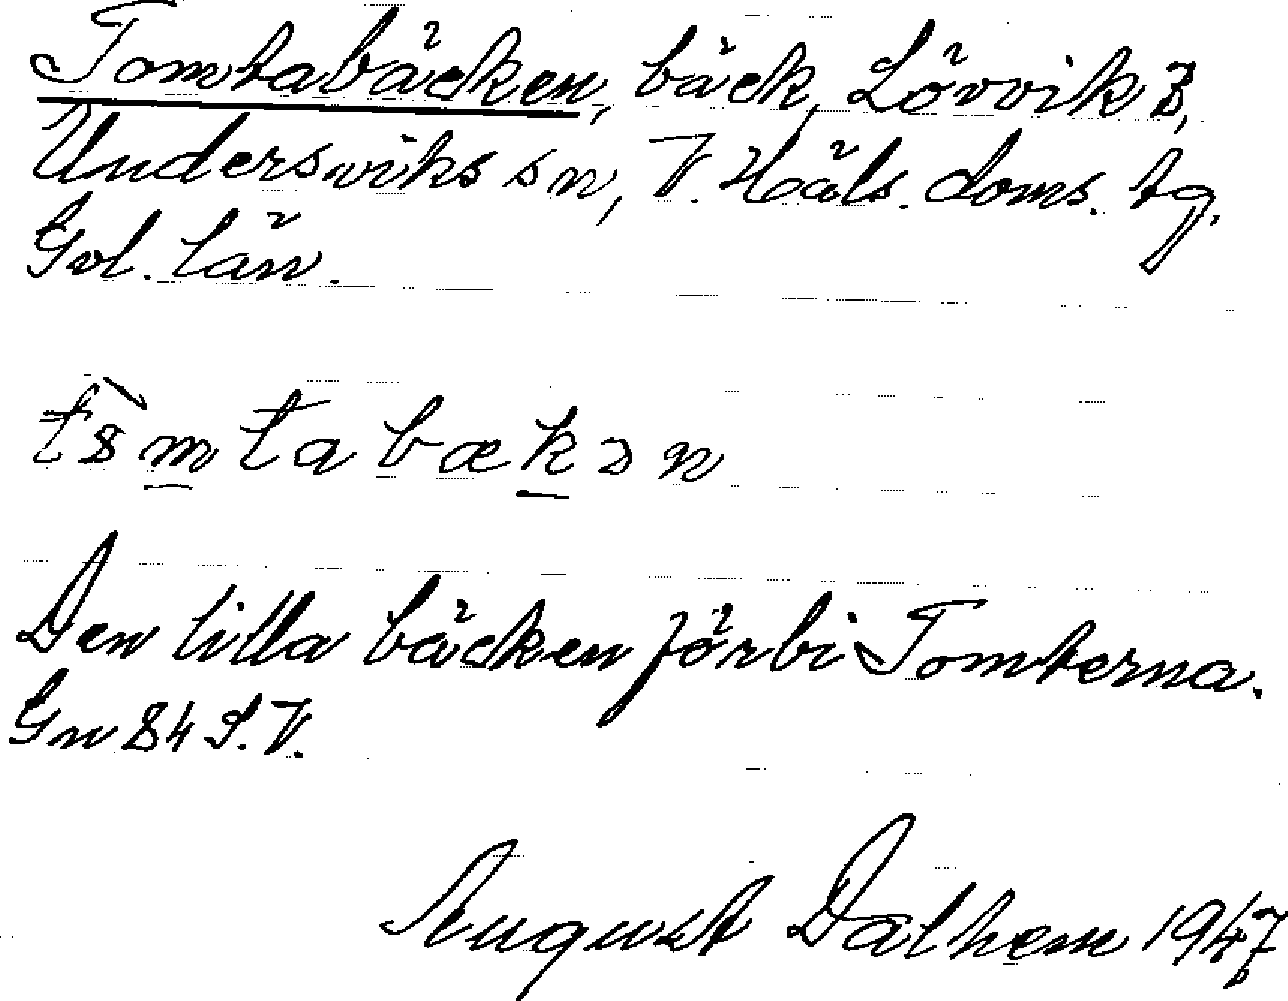 Tomtabäcken, bäck, Lövvik 3,
Undersviks sn, V. Häls. doms. tg.
Gvl. län.
Den lilla bäcken förbi Tomterna.
Gn 84 S.V.
August Dalhem 1947